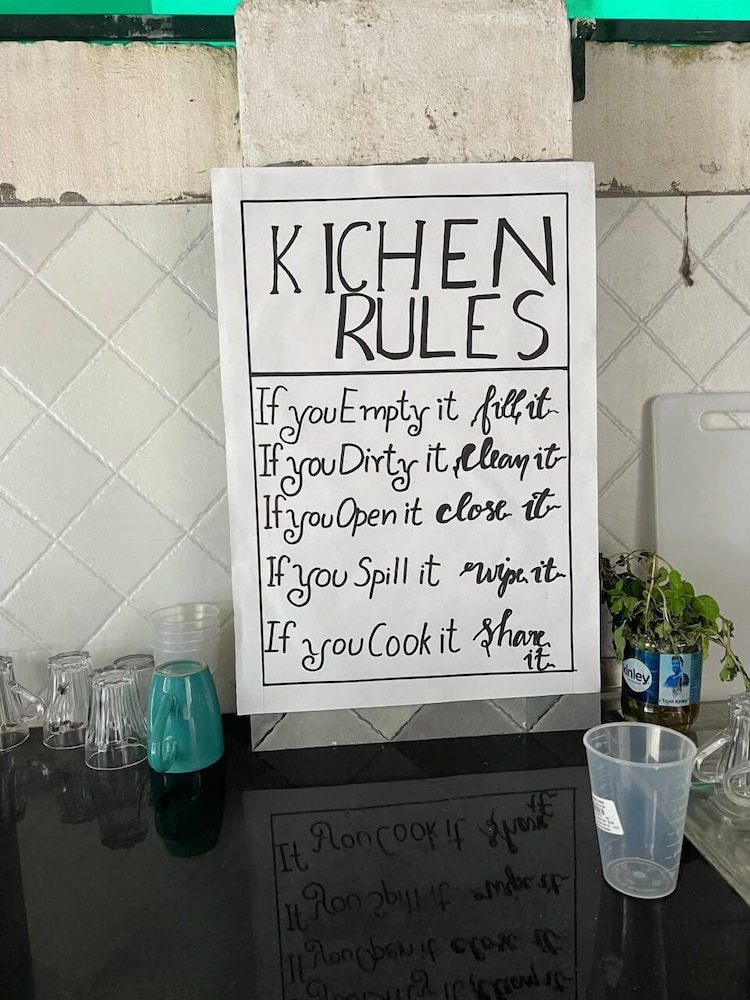 KICHEN
RULES
If you Empty it fill it
If you Dirty it clean it
If you Open it close it
If you Spill it wipe it
If you Cook it share
it
Kinley
I Trust Kinley